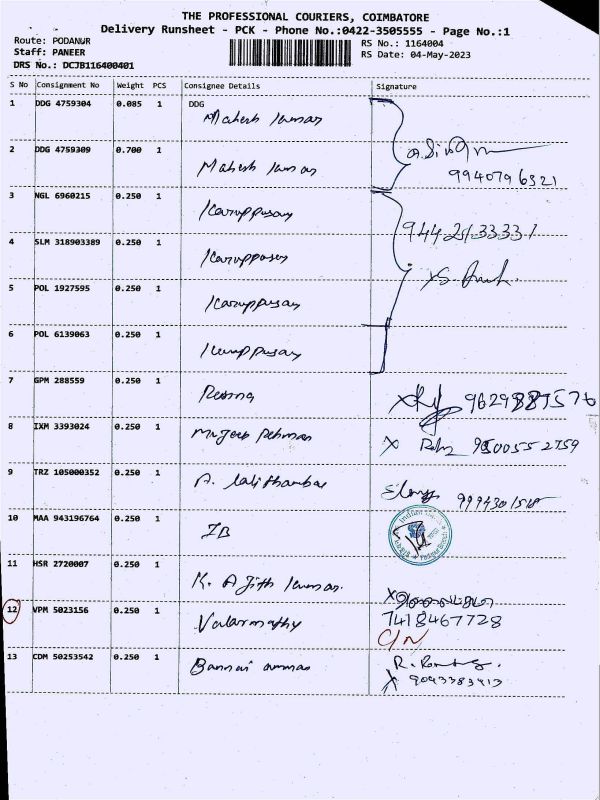 THE PROFESSIONAL COURIERS, COIMBATORE
Delivery Runsheet - PCK - Phone No.:0422-3505555 - Page No.:1
Route: PODANUR
RS No.: 1164004
Staff: PANEER
RS Date: 04-May-2023
DRS No.: DCJB116400401
S No Consignment No Weight PCS Consignee Details Signature
1 DDG 4759304 0.085 1 DDG
Mahesh Kumar
2 DDG 4759309 0.700 1 Mahesh Kumar
9940796321
3 NGL 6960215 0.250 1 Karuppusay
4 SLM 318903389 0.250 1 Karuppusay
5 POL 1927595 0.250 1 Karuppusay
6 POL 6139063 0.250 1 Karuppusay
7 GPM 288559 0.250 1
8 IXM 3393024 0.250 1 Mujeeb Rehman
9 TRZ 105000352 0.250 1 A. Lalithambae
10 MAA 943196764 0.250 1 IB
Indian
11 HSR 2720007 0.250 1 K. Ajith Kumar.
12 VPM 5023156 0.250 1 Valarmathy 7418467728
C/N
13 CDM 50253542 0.250 1 Bannari amman
9043383413